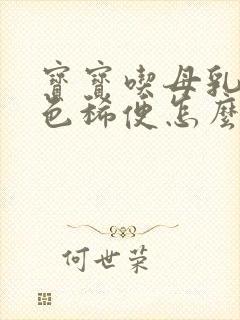 寶寶喫母乳
色稀便怎麼
何世荣